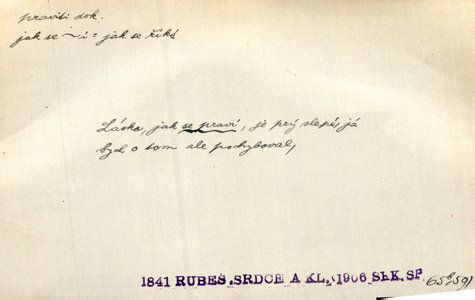 praviti dok.
jak se ~í = jak se říká
Láska, jak se praví, je prý slepá, já
bych o tom ale pochyboval,
1841 RUBEŠ, SRDCE A KL, 1906 SEK. SP.
65